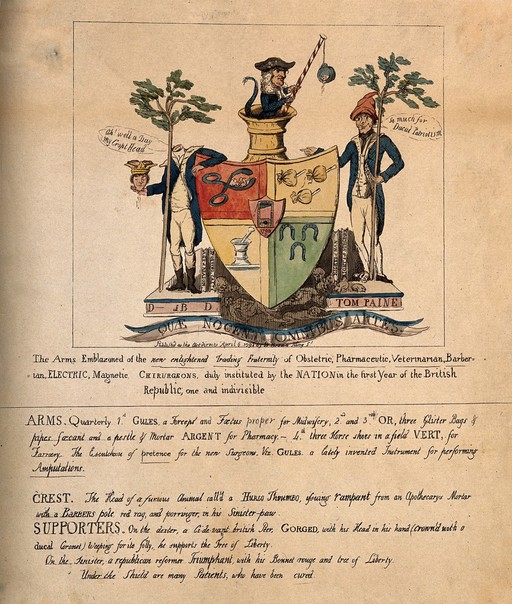 Ah! well a Day
my Cropt Head
So much for
Ducal Patriotism
D— of B— D
TOM PAINE
QUÆ NOCENT OMNIBUS ARTES
The Arms Emblazoned of the new enlightened Trading Fraternity of Obstetric, Pharmaceutic, Veterinarian, Barber-
-ian, ELECTRIC, Magnetic CHIRURGEONS, duly instituted by the NATION in the first Year of the British
Republic, one and indivisible
ARMS. Quarterly 1st GULES, a Forceps and Fœtus proper for Midwifery, 2nd and 3rd OR, three Glister Bags &
pipes, and a pestle & Mortar ARGENT for Pharmacy. — 4th three Horse shoes in a field VERT, for
Farriery. The Escutcheon of pretence for the new Surgeon, Viz. GULES. a lately invented Instrument for performing
Amputations.
CREST. The Head of a furious Animal call'd a HURLO THRUMBO, issuing rampant from an Apothecarys Mortar
with a BARBERS pole red rag, and porringer, in his Sinister paw
SUPPORTERS. On the dexter, a Ci-de-vant british Peer, GORGED, with his Head in his hand (crown'd with a
ducal Coronet) Weeping for its folly, he supports the Tree of Liberty.
On the Sinister, a republican reformer Triumphant, with his Bonnet rouge and tree of Liberty.
Under the Shield are many Patients, who have been cured